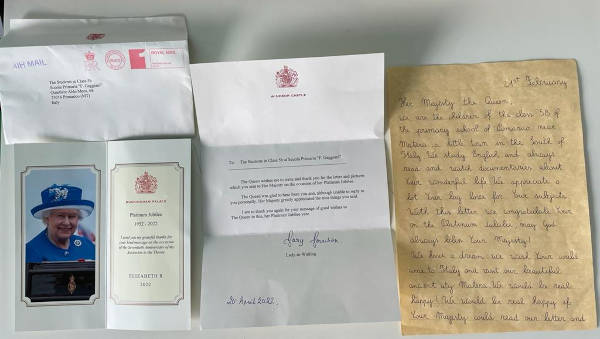 AIR MAIL
ROYAL MAIL
The Students in Class 5b
Scuola Primaria "F.
Italy
BUCKINGHAM PALACE
Platinum Jubilee
1952 - 2022
I send you my grateful thanks for
your kind message on the occasion
of the Seventieth Anniversary of my
Accession to the Throne
ELIZABETH R
2022
WINDSOR CASTLE
To: The Students in Class 5b of Scuola Primaria "F.
The Queen wishes me to write and thank you for the letter and pictures
which you sent to Her Majesty on the occasion of her Platinum Jubilee.
The Queen was glad to hear from you and, although unable to reply to
you personally, Her Majesty greatly appreciated the nice things you said.
I am to thank you again for your message of good wishes to
The Queen in this, her Platinum Jubilee year.
Lady-in-Waiting
20 April 2022.
21st February
Her Majesty the Queen,
we are the children of the class 5B of
the primary school of near
Matera a little town in the South of
Italy. We study English and always
read and watch documentaries about
Your wonderful life. We appreciate a
lot Your big love for Your subjects.
With this letter we congratulate Your
on the Platinum Jubilee may God
always bless Your Majesty!
We have a dream: we wish You could
come to Italy and visit our beautiful
ancient city Matera. We would be real
happy! We would be real happy if
Your Majesty could read our letter and